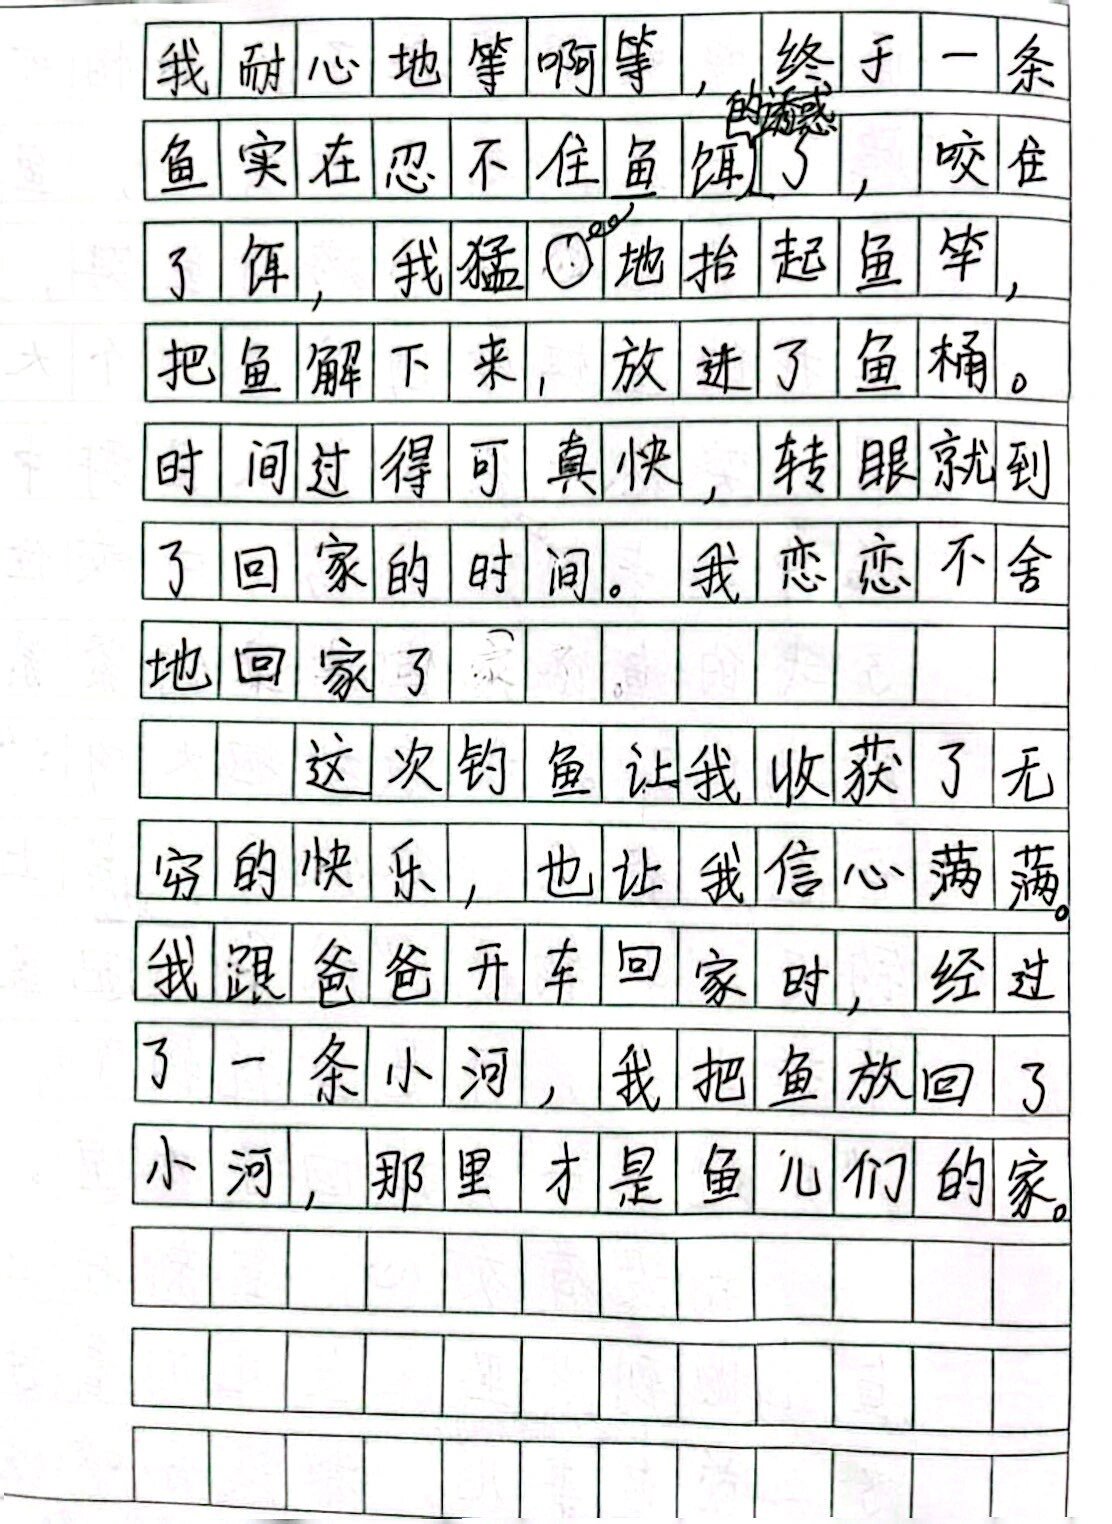 我耐心地等啊等，终于一条
鱼实在忍不住鱼饵的诱惑了，咬住
了饵，我猛地抬起鱼竿，
把鱼解下来，放进了鱼桶。
时间过得可真快，转眼就到
了回家的时间。我恋恋不舍
地回家了
这次钓鱼让我收获了无
穷的快乐，也让我信心满满。
我跟爸爸开车回家时，经过
了一条小河，我把鱼放回了
小河，那里才是鱼儿们的家。